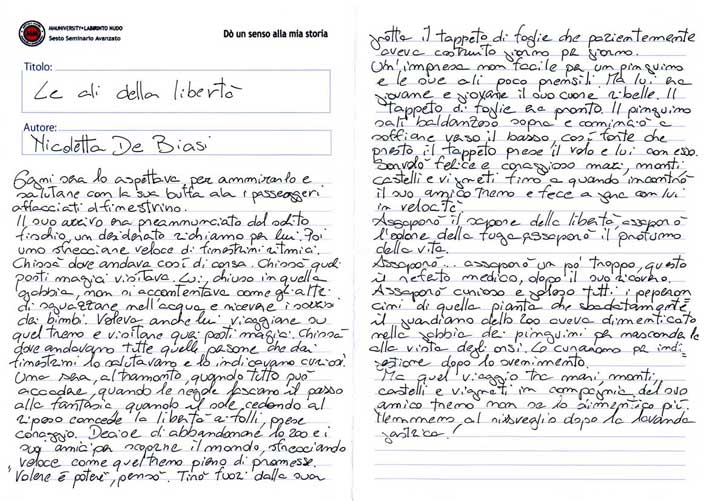 HUNIVERSITY+LABIRINTO NUDO
Sesto Seminario Avanzato
Dò un senso alla mia storia
Titolo:
Le ali della libertà
Autore:
Nicoletta De Biasi
Ogni sera lo aspettava, per ammirarlo e
salutare con la sua buffa ala i passeggeri
affacciati al finestrino.
Il suo arrivo era preannunciato dal solito
fischio, un desiderato richiamo per lui. Poi
uno sfrecciare veloce di finestrini ritmici.
Chissà dove andava così di corsa. Chissà quali
posti magici visitava. Lui, chiuso in quella
gabbia, non si accontentava come gli altri
di sguazzare nell'acqua e ricevere i sorrisi
dei bimbi. Voleva anche lui viaggiare su
quel treno e visitare quei posti magici. Chissà
dove andavano tutte quelle persone che dai
finestrini lo salutavano e lo indicavano curiosi.
Una sera, al tramonto, quando tutto può
accadere, quando le regole lasciano il passo
alla fantasia, quando il sole, cedendo al
riposo concede la libertà ai folli, prese
coraggio. Decise di abbandonare lo zoo e i
suoi amici per scoprire il mondo, sfrecciando
veloce come quel treno pieno di promesse.
Volere è potere, pensò. Tirò fuori dalla sua
grotta il tappeto di foglie che pazientemente
aveva costruito giorno per giorno.
Un'impresa non facile per un pinguino
e le sue ali poco prensili. Ma lui era
giovane e giovane il suo cuore ribelle. Il
tappeto di foglie era pronto. Il pinguino
salì baldanzoso sopra e cominciò a
soffiare verso il basso così forte che
presto il tappeto prese il volo e lui con esso.
Sorvolò felice e coraggioso mari, monti
castelli e vigneti fino a quando incontrò
il suo amico treno e fece a gara con lui
in velocità.
Assaporò il sapore della libertà, assaporò
l'odore della fuga, assaporò il profumo
della vita.
Assaporò... assaporò un po' troppo, questo
il referto medico, dopo il suo ricovero.
Assaporò curioso e goloso tutti i peperon
cini di quella pianta che sbadatamente
il guardiano dello zoo aveva dimenticato
nella gabbia dei pinguini per nasconderle
alla vista degli orsi. Lo curarono per indi-
gestione dopo lo svenimento.
Ma quel viaggio tra mari, monti,
castelli e vigneti in compagnia del suo
amico treno non se lo dimenticò più.
Nemmeno al risveglio dopo la lavanda
gastrica.